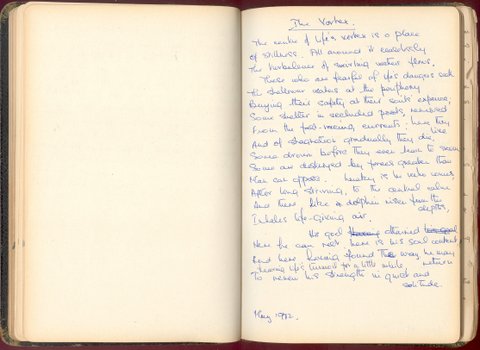 The Vortex.
The centre of life's vortex is a place
of stillness. All around it ceaselessly
The turbulence of swirling waters flows.
Those who are fearful of life's dangers seek
The shallower waters at the periphery
Buying their safety at their souls expense;
Some shelter in secluded pools, removed
From the fast-moving currents: here they live
And of stagnation gradually they die;
Some drown before they even learn to swim
Some are destroyed by forces greater than
Man can oppose. Lucky is he who comes,
After long striving, to the central calm
And there, like a dolphin risen from the depths,
Inhales life-giving air.
His goal attained
Here he can rest here is his soul content,
And here having found the way he may return
Leaving life's turmoil for a little while,
To renew his strength in quiet and solitude.
May 1982.